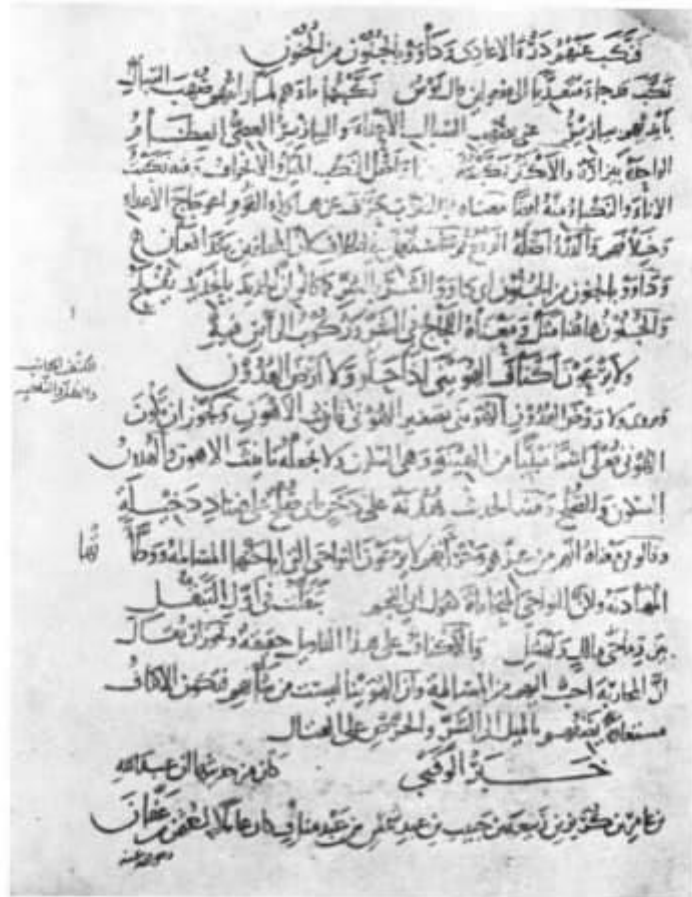 فَنَكَّبَ عَنْهُمْ دَرْءَ الاعادِي وَدَاوَوْا بالجُنُونِ مِنَ الجُنُونِ
نكّب قد جاء متعديا الى مفعولين قال اوس نكبتها ماءهم لما رايتهم صهب السبال
بايديهم بيازير عنى بصهب السبال الاعداء والبيازير العصي العظام
الواحدة بيزارة والاكثر نكبته واصل النكب الميل والانحراف ومنه نكبت
الاناء والنكباء منه ايضا معناه الضرب حرف عن هؤلاء القوم اعوجاج الاعداء
وخلافهم والدرء اصله الدفع ثم تستعمله في الخلاف لان المختلفين يتدافعان
وداووا بالجنون من الجنون اي داووا الشر بالشر كما قالوا ان الحديد بالحديد يفلح
والجنون هاهنا مثل ومعناه اللجاج في الشر وركوب الراس فيه
ولا يرعون اكناف الهوينى اذا حلوا ولا ارض الهدون
ويروى ولا روض الهدون الهوينى تصغير الهونى تانيث الاهون ويجوز ان يكون
الهونى فعلى اسما مبنيا من الهينة وهي السكون ولا تجعله تانيث الاهون والهدون
السكون والصلح ومنه الحديث هدنة على دخن اي صلح على فساد دخيلة
وقالوا معناه انهم من عزهم وجرأتهم لا يرعون النواحي التي اباحتها المسالمة ووطأتها
المهادنة ولكن النواحي المتحاماة كقول ابي النجم تبقلت في اول التبقل
بين رماحي مالك ونهشل والاكناف على هذا التاويل حقيقة ويجوز ان يقال
ان المحاربة احب اليهم من المسالمة وان الهوينا ليست من شأنهم فتكون الاكناف
مستعارة يصفهم بالميل الى الشر والحرص على القتال
خبر الوقبى كان من حديثها ان عبد الله
بن عامر بن كريز بن ربيعة بن حبيب بن عبد شمس بن عبد مناف كان عاملا لعثمن بن عفان
رضي الله عنه
الكنف الجانب